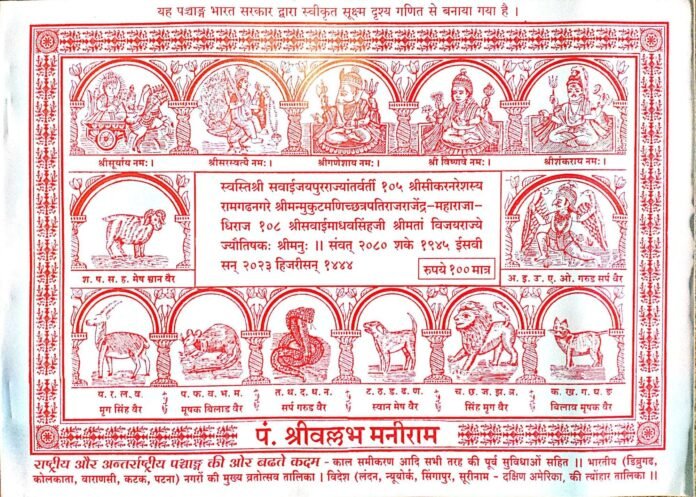 यह पञ्चाङ्ग भारत सरकार द्वारा स्वीकृत सूक्ष्म दृश्य गणित से बनाया गया है ।
श्रीसूर्याय नमः। श्रीसरस्वत्यै नमः। श्रीगणेशाय नमः। श्री विष्णवे नमः। श्रीशंकराय नमः।
स्वस्तिश्री सवाईजयपुरराज्यांतर्वर्ती १०५ श्रीसीकरनरेशस्य
रामगढनगरे श्रीमन्मुकुटमणिच्छत्रपतिराजराजेंद्र-महाराजा-
धिराज १०८ श्रीसवाईमाधवसिंहजी श्रीमतां विजयराज्ये
ज्यौतिषकः श्रीमनुः ।। संवत् २०८० शके १९४५ ईसवी
सन् २०२३ हिजरीसन् १४४४
रुपये १०० मात्र
श. ष. स. ह. मेष श्वान वैर
अ. इ. उ. ए. ओ. गरुड सर्प वैर
य. र. ल. व. प. फ. ब. भ. म. त. थ. द. ध. न. ट. ठ. ड. ढ. ण. च. छ. ज. झ. ञ. क. ख. ग. घ. ङ
मृग सिंह वैर मूषक बिलाड वैर सर्प गरुड वैर स्वान मेष वैर सिंह मृग वैर बिलाव मूषक वैर
पं. श्रीवल्लभ मनीराम
राष्ट्रीय और अन्तर्राष्ट्रीय पञ्चाङ्ग की ओर बढते कदम - काल समीकरण आदि सभी तरह की पूर्व सुविधाओं सहित ।। भारतीय (डिब्रुगढ,
कोलकाता, वाराणसी, कटक, पटना) नगरों की मुख्य व्रतोत्सव तालिका । विदेश (लंदन, न्यूयोर्क, सिंगापुर, सूरीनाम - दक्षिण अमेरिका, की त्यौहार तालिका ।।